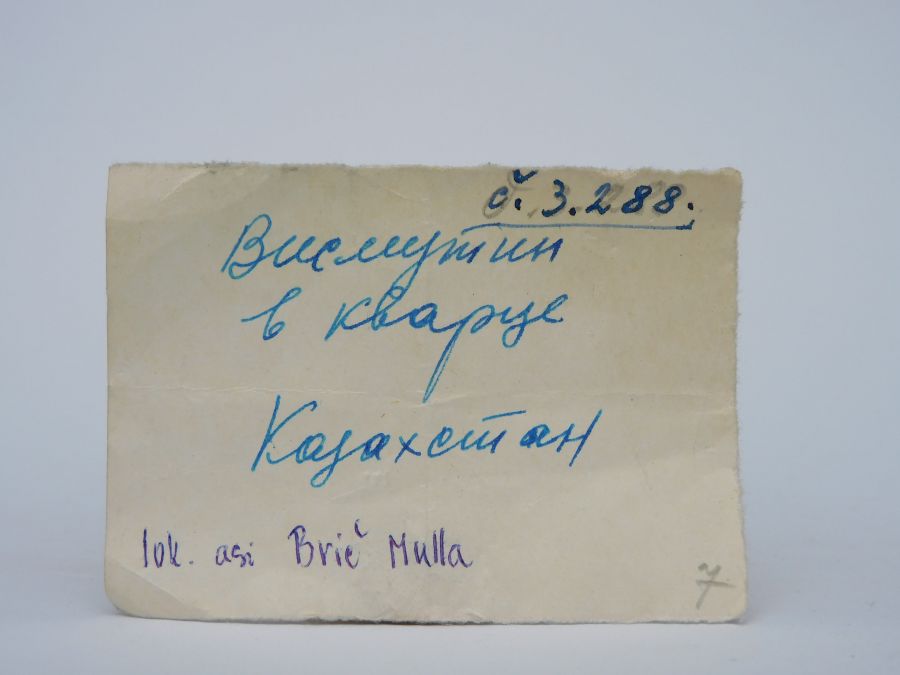 č. 3.288.
Висмутин
в кварце
Казахстан
lok. asi Brič Mulla
7